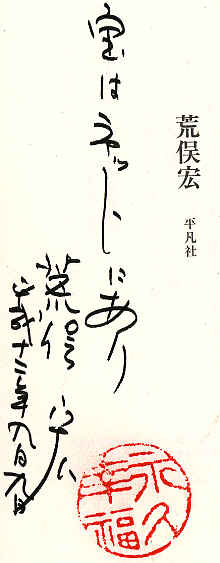 荒俣宏
平凡社
宝はネットにあり
荒俣宏
平成十二年九月九日
永久幸福